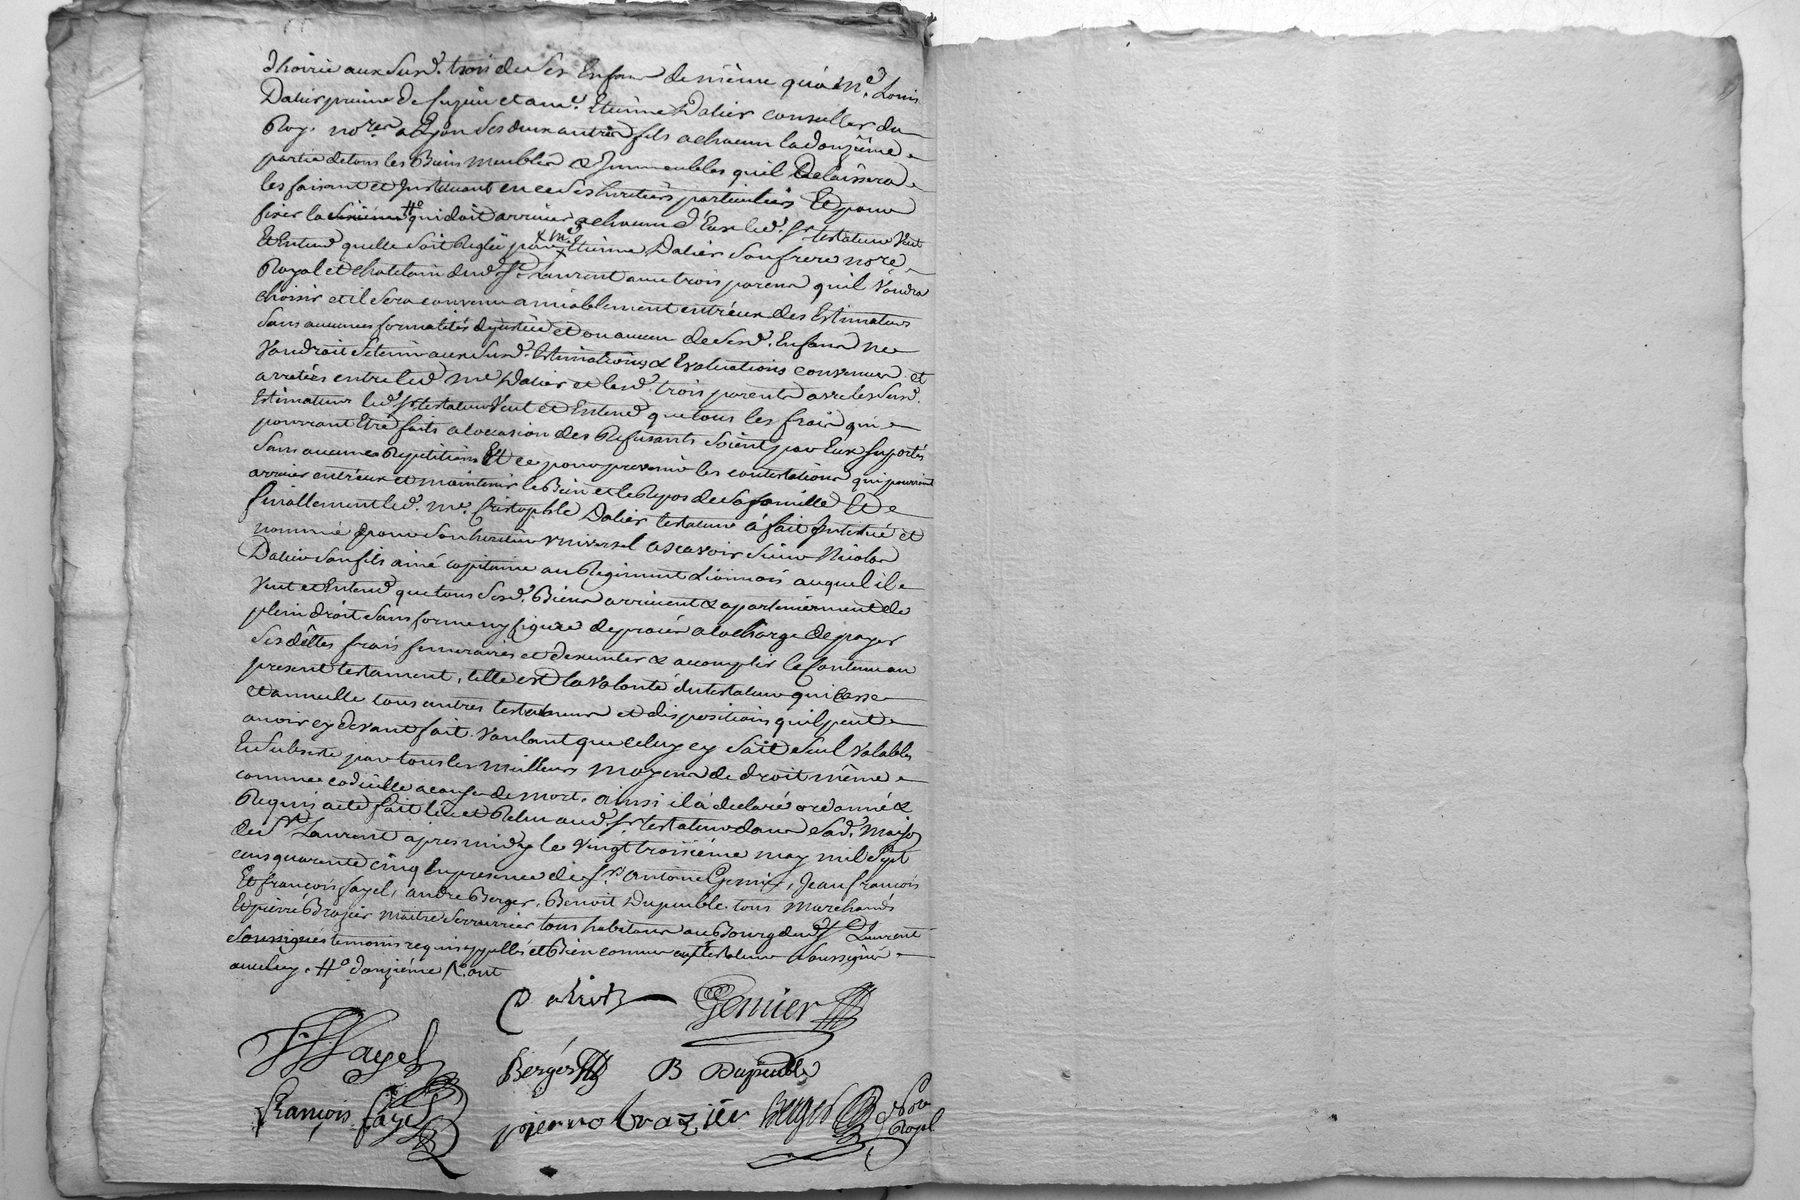 d'hoirie aux susd. trois de ses Enfans de même qu'a Me. Louis
Dalier prieur de et a me. Etienne Dalier conseiller du
Roy. nore. a Lyon ses deux autres fils a chacun la douzième
partie de tous les Biens meubles & Immeubles qu'il Delaissera
les faisant et Instituant en ce ses heritiers particuliers Et pour
fixer la #o qui doit arriver a chacun d'Eux led. Sr. testateur Veut
Et Entend qu'elle soit Reglée par x me. Etienne Dalier son frere nore.
Royal et chatelain dud. St. Laurent avec trois parens qu'il Voudra
choisir et il sera convenu amiablement entr'eux des Estimateurs
sans aucunes formalités de justice et ou aucun de sesd. Enfans ne
Voudroit s'tenir aux susd. Estimations & Evaluations convenues et
arretées entre led. me Dalier et lesd. trois parents avec les susd.
Estimateurs led. Sr. testateur Veut et Entend que tous les frais qui
pourront Etre faits a l'occasion des Refusants soient par Eux suportés
sans aucunes Repetitions Et ce pour prevenir les contestations qui pourroient
arriver entr'eux et maintenir le Bien et le Repos de sa famille Et
finallement led. me. Cristophle Dalier testateur à fait Institué et
nommé pour son heritier universel ascavoir sieur Nicolas
Dalier son fils ainé capitaine au Regiment Lionnois auquel il
Veut et Entend que tous sesd. Biens arrivent & apartiennent de
plein droit sans forme ny figure de procés a la charge de payer
ses dêttes frais funeraires et d'executer & accomplir le Contenu au
present testament, telle est la Volonté du testateur qui Casse
et annulle tous autres testamens et dispositions qu'il peut
avoir cy devant fait. Voulant que celuy cy soit seul Valable
Et subsiste par tous les meilleurs moyens de droit même
comme codicille a cause de mort. ainsi il à declaré ordonné &
Requis acte fait lû et Relu aud. Sr. testateur dans sad. maison
de St. Laurent apres midy le Vingt troisième may mil sept
cens quarante cinq En presence de Srs. Antoine Genier, Jean françois
Et françois fayel, andré Berger, Benoit Dupuble. tous marchands
Et pierre Brazier maitre serrurier tous habitans au Bourg dud. St. Laurent
soussignés temoins requis appellés et Bien connus aud. testateur soussigné
avec luy. #o douzième R. ont
Dalier Genier
JF fayel
Berger B Dupuble
françois fayel pierre brazier Berger Nore
Royal